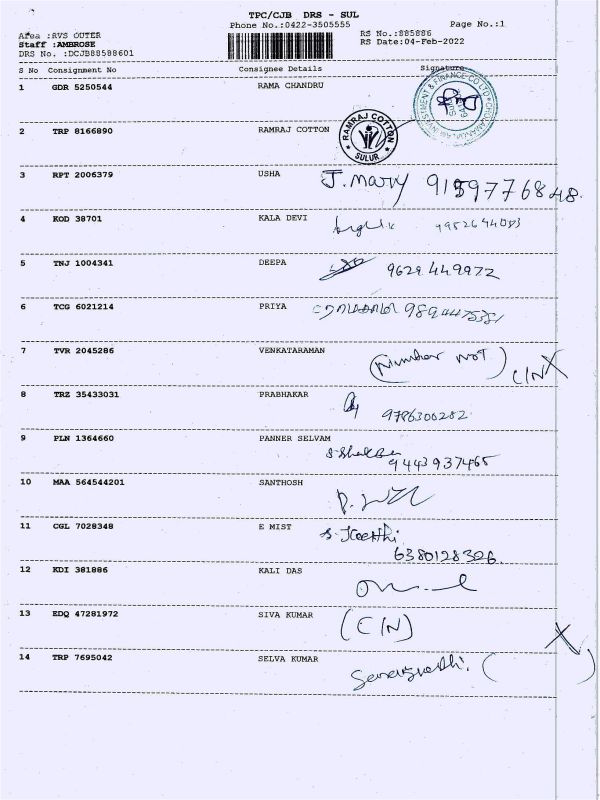 TPC/CJB DRS - SUL
Phone No.:0422-3505555
Page No.:1
Area :RVS OUTER
RS No.:885886
Staff :AMBROSE
RS Date:04-Feb-2022
DRS No. :DCJB88588601
S No Consignment No Consignee Details Signature
1 GDR 5250544 RAMA CHANDRU
INVESTMENT & FINANCE CO LTD
2 TRP 8166890 RAMRAJ COTTON
RAMRAJ COTTON
SULUR
3 RPT 2006379 USHA J. Mary
4 KOD 38701 KALA DEVI
5 TNJ 1004341 DEEPA 9629449972
6 TCG 6021214 PRIYA
7 TVR 2045286 VENKATARAMAN (Number not) C/N X
8 TRZ 35433031 PRABHAKAR 9786300282
9 PLN 1364660 PANNER SELVAM
9443937465
10 MAA 564544201 SANTHOSH
11 CGL 7028348 E MIST S. Keerthi
6380128326.
12 KDI 381886 KALI DAS
13 EDQ 47281972 SIVA KUMAR (C/N) X
14 TRP 7695042 SELVA KUMAR